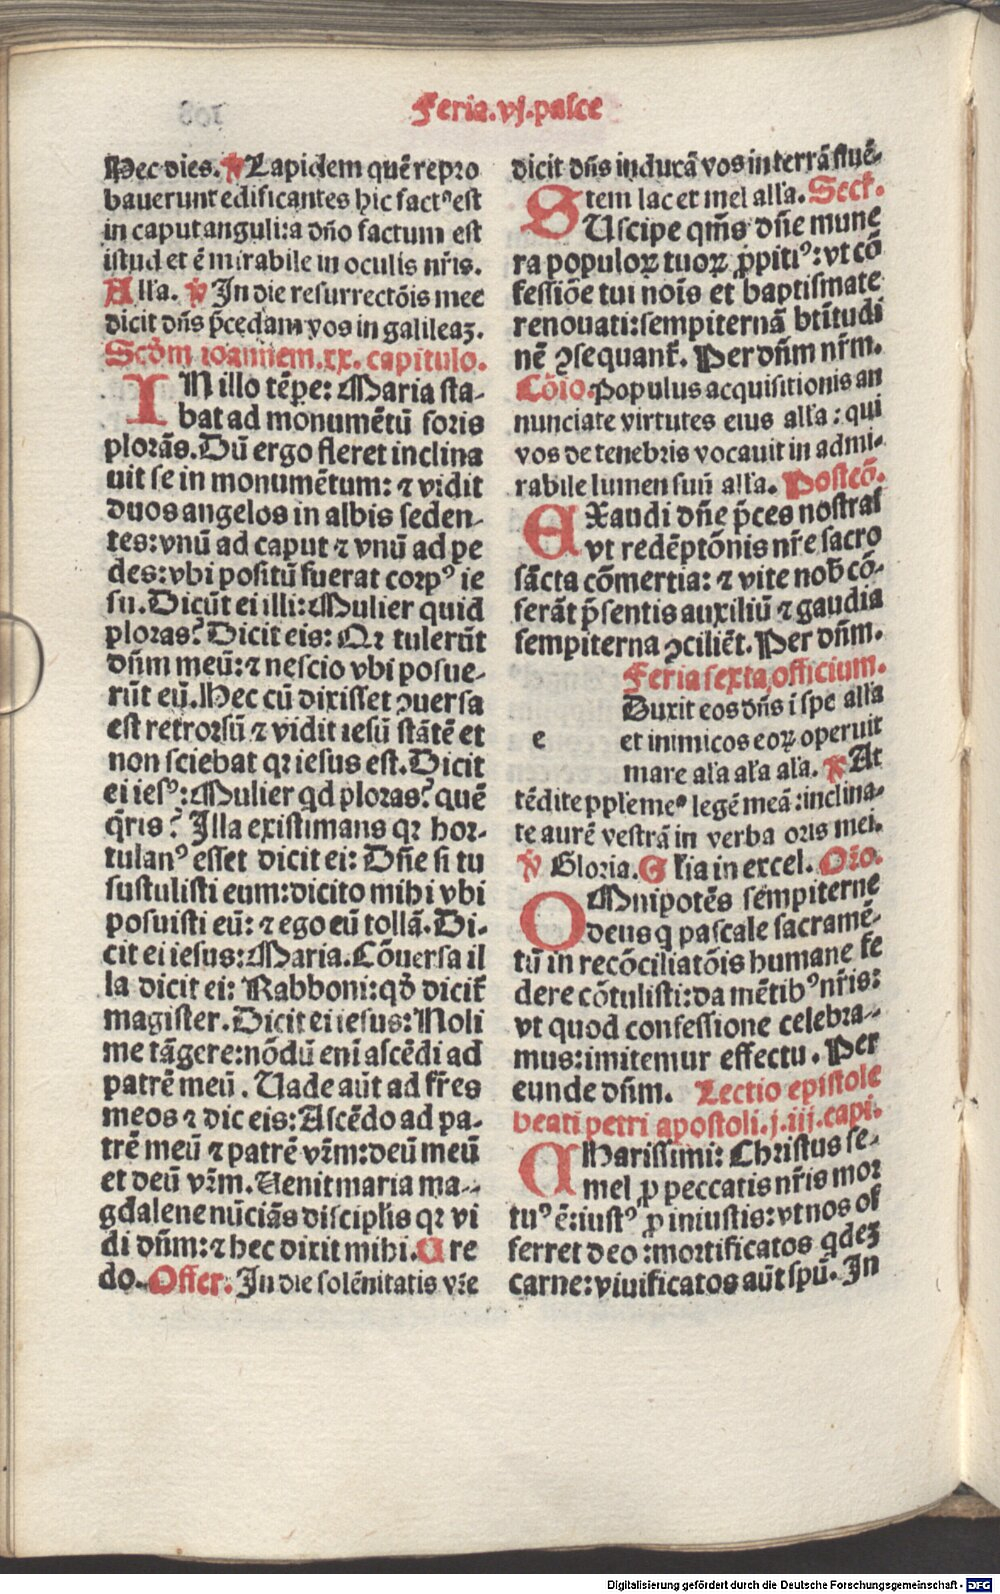 Feria.vj.pasce
Hec dies. ℣ Lapidem quē repro
bauerunt edificantes hic factꝰ est
in caput anguli: a dño factum est
istud et ē mirabile in oculis nr̄is.
Alľa. ℣ In die resurrectōis mee
dicit dn̄s p̄cedam vos in galileaꝫ.
Scďm ioannem.xx. capitulo.
IN illo tēpe: Maria sta-
bat ad monumētū foris
plorās. Dū ergo fleret inclina
uit se in monumētum: ⁊ vidit
duos angelos in albis seden-
tes: vnū ad caput ⁊ vnū ad pe
des: vbi positū fuerat corpꝰ ie
su. Dicūt ei illi: Mulier quid
ploras? Dicit eis: Qꝛ tulerūt
dn̄m meū: ⁊ nescio vbi posue-
rūt eū. Hec cū dixisset ꝯuersa
est retrorsū ⁊ vidit iesū stātē et
non sciebat qꝛ iesus est. Dicit
ei iesꝰ: Mulier qd ploras? quē
q̄ris? Illa existimans qꝛ hor-
tulanꝰ esset dicit ei: Dn̄e si tu
sustulisti eum: dicito mihi vbi
posuisti eū: ⁊ ego eū tollā. Di-
cit ei iesus: Maria. Cōuersa il
la dicit ei: Rabboni: qď dicit̄
magister. Dicit ei iesus: Noli
me tāgere: nōdū eni ascēdi ad
patrē meū. Uade aūt ad fr̄es
meos ⁊ dic eis: Ascēdo ad pa-
trē meū ⁊ patrē vr̄m: deū meū
et deū vr̄m. Uenit maria ma-
gdalene nūciās discipľis qꝛ vi
di dn̄m: ⁊ hec dixit mihi. Cre
do. Offer. In die solēnitatis vr̄e
dicit dn̄s inducā vos in terrā fluē-
tem lac et mel alľa. Secr̄.
SUscipe qm̄s dn̄e mune
ra populoꝝ tuoꝝ ꝓpitiꝰ: vt cō
fessiōe tui nois et baptismate
renouati: sempiternā btītudi
nē ꝯsequant̄. Per dn̄m nr̄m.
Cōio. Populus acquisitionis an
nunciate virtutes eius alľa: qui
vos de tenebris vocauit in admi-
rabile lumen suū alľa. Postcō.
EXaudi dn̄e p̄ces nostras
vt redēptōnis nr̄e sacro
sācta cōmertia: ⁊ vite nob̄ cō-
ferāt p̄sentis auxiliū ⁊ gaudia
sempiterna ꝯciliēt. Per dn̄m.
Feria sexta officium.
Duxit eos dn̄s i spe alľa
e et inimicos eoꝝ operuit
mare aľa aľa aľa. ℣ At
tēdite ppľe meꝰ legē meā: inclina-
te aurē vestrā in verba oris mei.
℣ Gloria. Gľia in excel. Or̄o.
OMnipotēs sempiterne
deus q pascale sacramē-
tū in recōciliatōis humane fe
dere cōtulisti: da mētibꝰ nr̄is:
vt quod confessione celebra-
mus: imitemur effectu. Per
eunde dn̄m. Lectio epistole
beati petri apostoli.j.iij.capi.
CHarissimi: Christus se-
mel ꝓ peccatis nr̄is mor
tuꝰ ē: iustꝰ ꝓ iniustis: vt nos of
ferret deo: mortificatos qdeꝫ
carne: viuificatos aūt spū. In
Digitalisierung gefördert durch die Deutsche Forschungsgemeinschaft - DFG